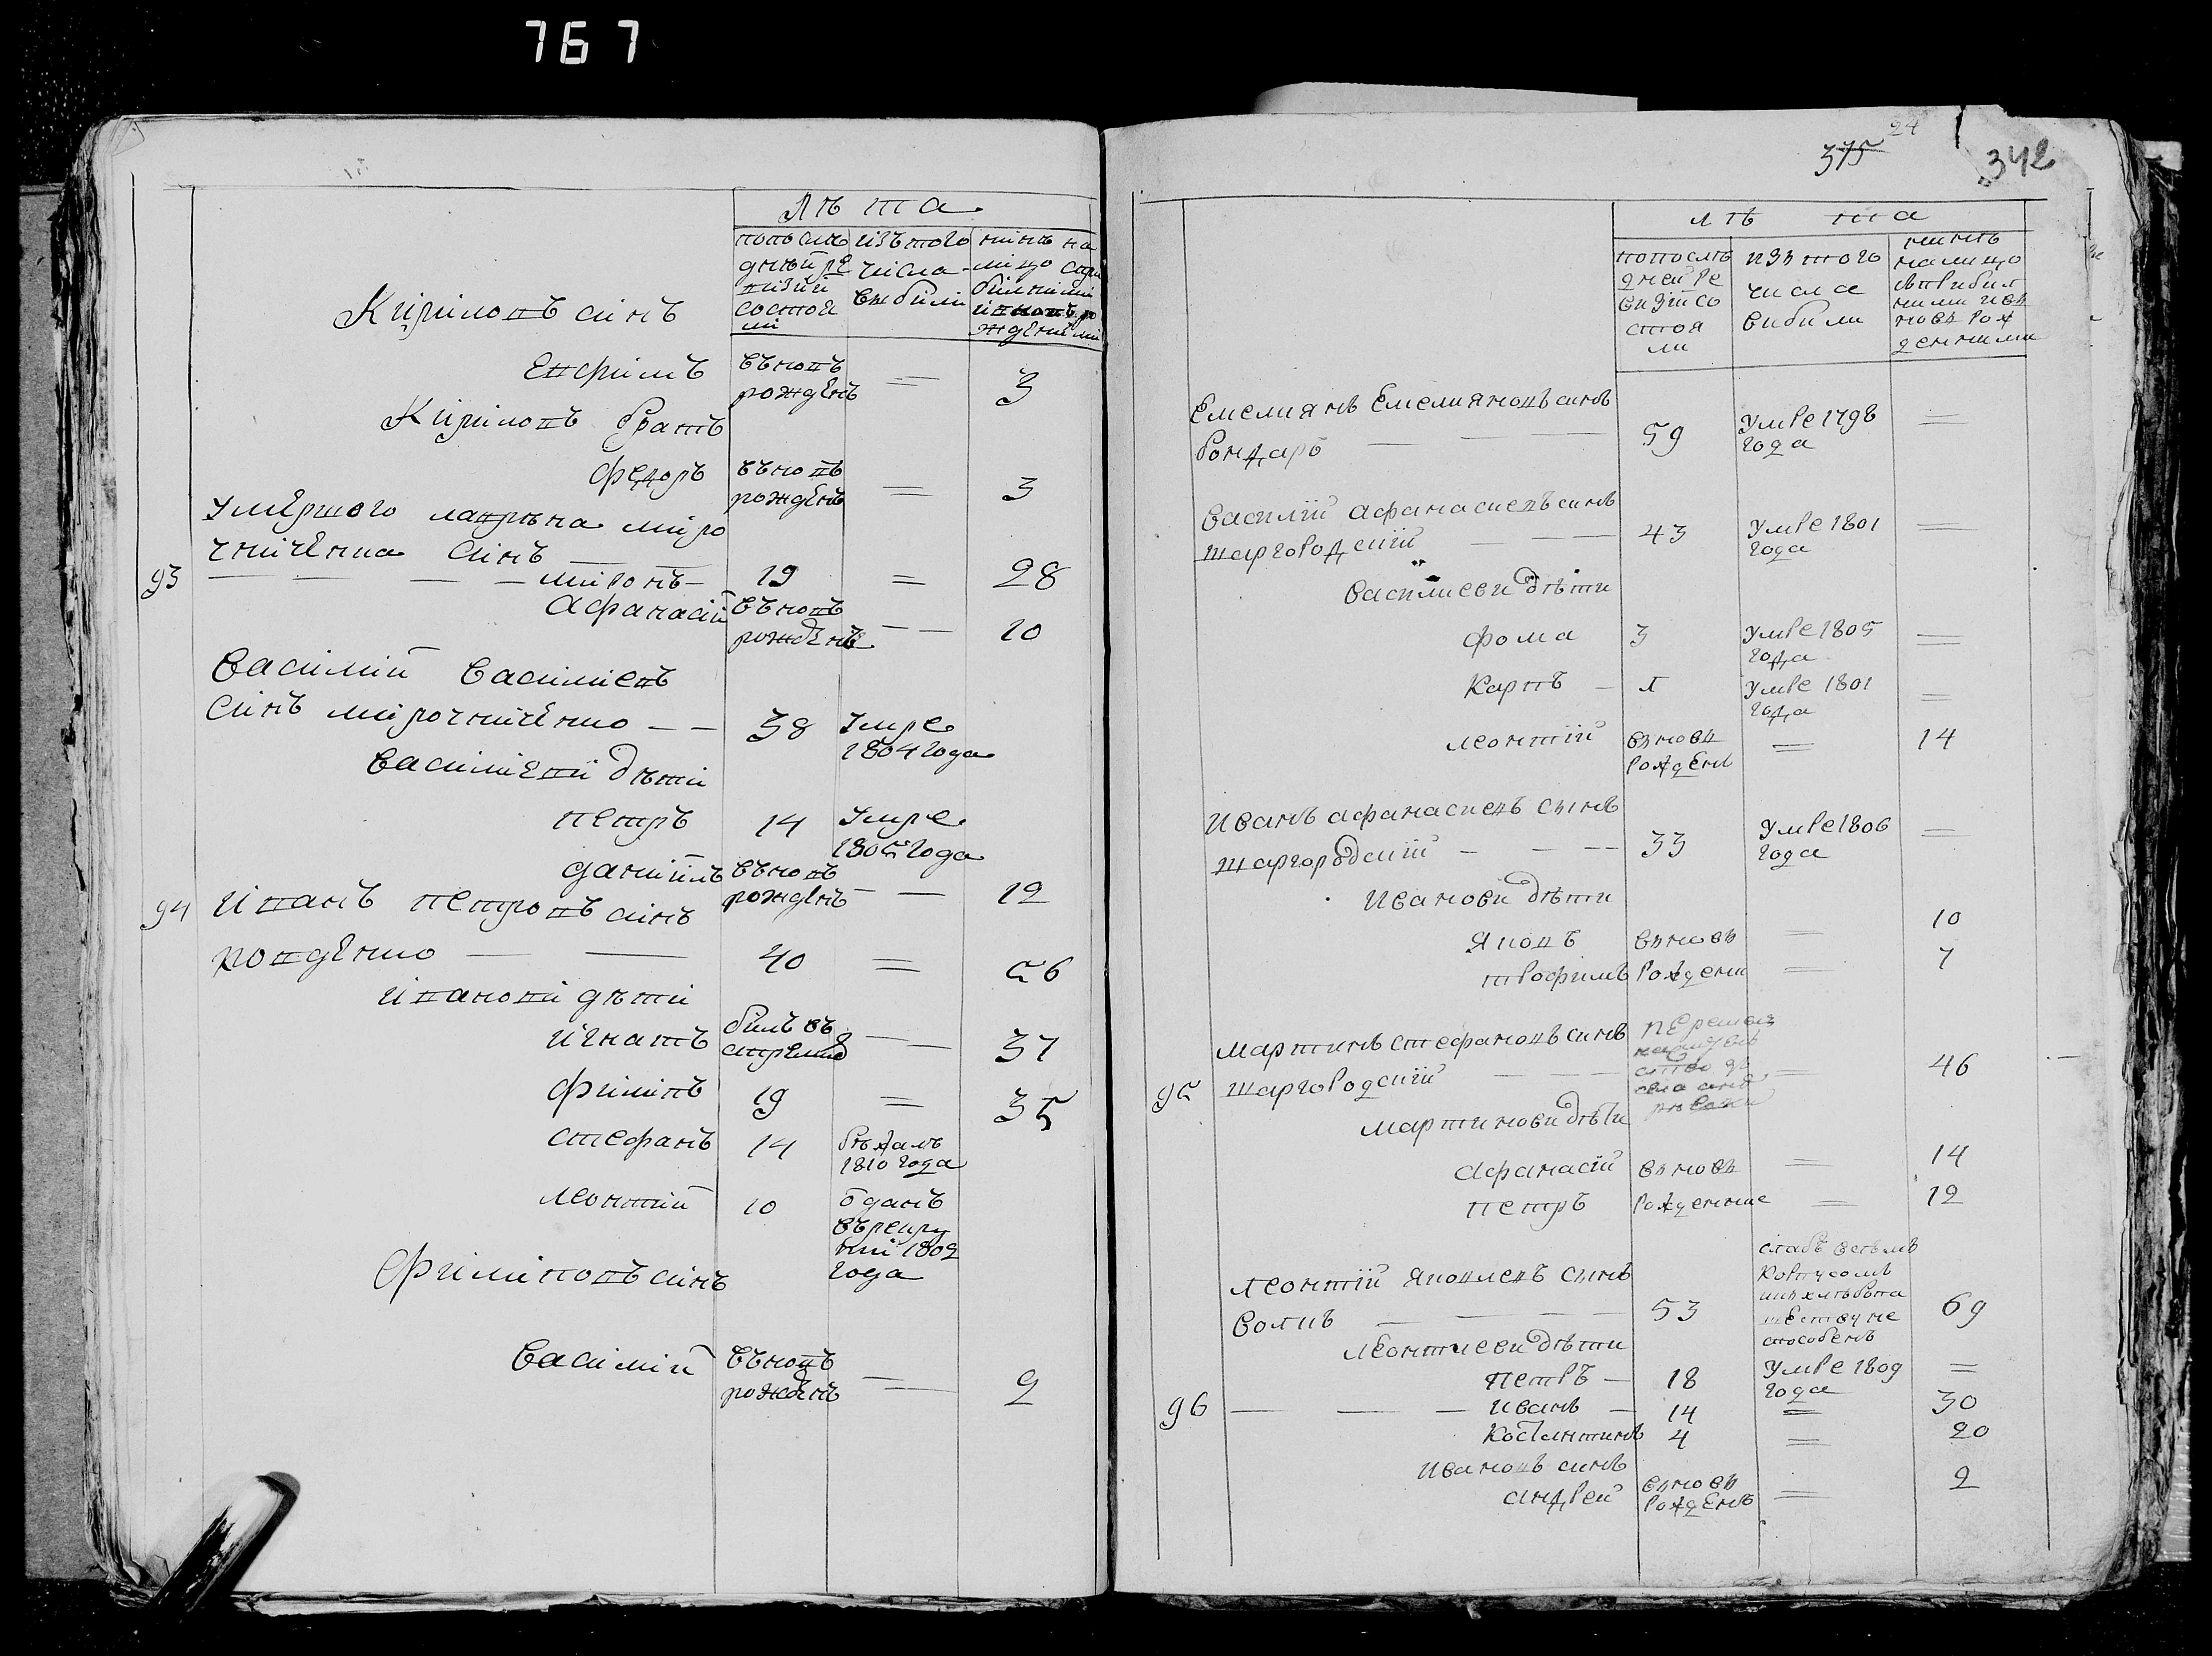 767
лѣта
попослѣ
дней ре
визии
состоя
ли
ізъ того
числа
выбили
нинѣ на
лицо
Кирилловъ синъ
Евфимъ въновь
рожденъ = 3
Кириловъ братъ
Федоръ въновь
рожденъ = 3
Умершого лаврѣна миро
чниченка синъ
93 миронъ 19 = 28
Афанасій въновь
рожденъ — — 10
Василий Василиевъ
синъ мирочниченко — — 38 Умре
1804 года
Василиеви дѣти
петръ 14 Умре
1805 года
даниилъ въновь
рожденъ — — 12
94 Иванъ петровъ синъ
рожденко — — 40 = 56
Иванови дѣти
Игнатъ билъ въ
— — 37
Филипъ 19 = 35
Стефанъ 14 бѣжалъ
1810 года
леонтий 10 отданъ
въ рекру
ти 1809
года
Филиповъ синъ
Василий въновь
рожденъ = 2
24
375
342
лѣта
попослѣ
дней ре
визіи со
стоя
ли
изъ того
числа
вибили
нинѣ
налицо
съ прибил
ними и вь
новь рож
денними
Емелиянъ Емелияновъ синъ
бондаръ — — — 59 Умре 1798
года =
Василій афанасиевъ синъ
шаргородский — — — 43 Умре 1801
года =
Василиеви дѣти
фома 3 Умре 1805
года =
Карпъ — л Умре 1801
года =
леонтій вновь
рожденъ = 14
Иванъ афанасиевъ сынъ
шаргородский — — — 33 Умре 1806
года =
Иванови дѣти
Яковъ вновь = 10
трофимъ рождени = 7
мартинъ стефановъ синъ
95 шаргородский — — — = 46
мартинови дѣти
афанасій вновь = 14
петръ рожденние = 12
леонтій Яковлевъ сынъ
волкъ — — — 53 слабъ всѣмъ
корпусомъ
и къ хлѣбопа
шеству не
способенъ 69
леонтиеви дѣти
петръ — 18 Умре 1809
года =
96 — — — Иванъ — 14 = 30
Костантинъ 4 = 20
Ивановъ синъ
андрей вновь
рожденъ = 2